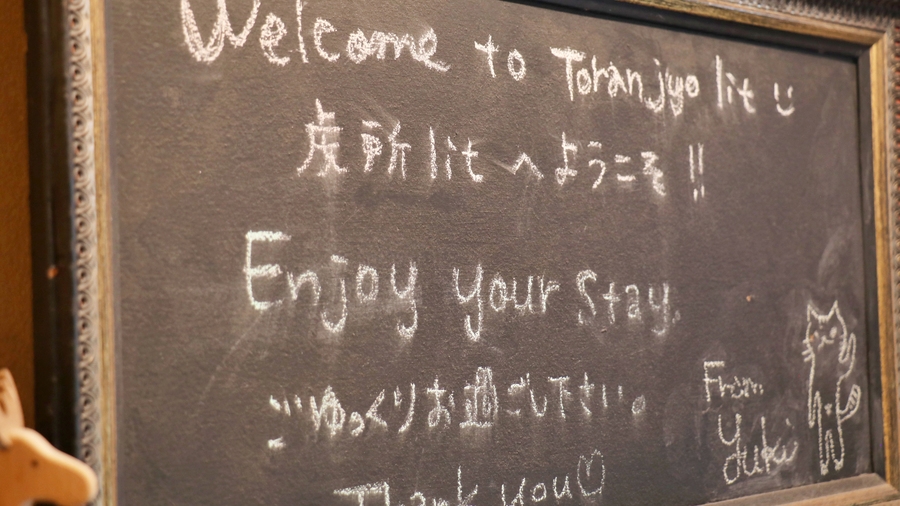 Welcome to Toranjyo lit
虎所 lit へようこそ!!
Enjoy your Stay.
ごゆっくりお過ごし下さい。
Thank you♡
From
Yuki